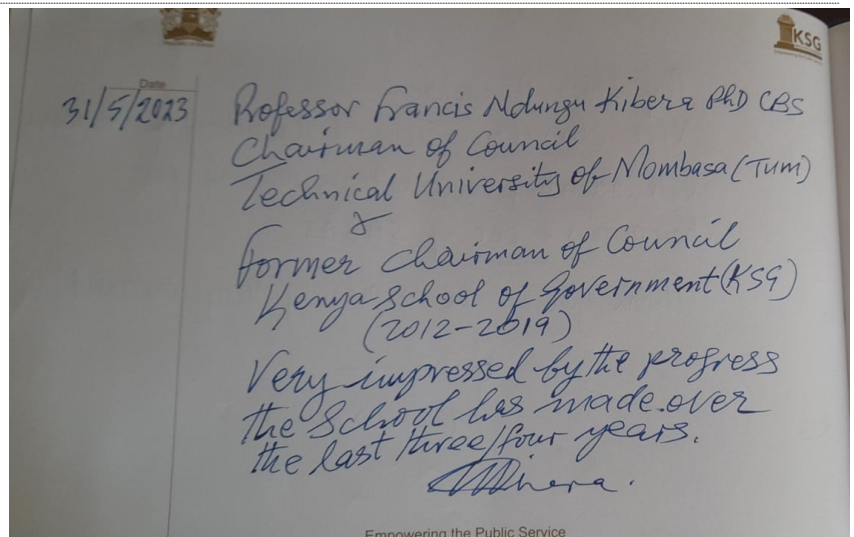 KSG
Date
31/5/2023
Professor Francis Ndungu Kibera PhD CBS
Chairman of Council
Technical University of Mombasa (TUM)
&
Former Chairman of Council
Kenya School of Government (KSG)
(2012-2019)
Very impressed by the progress
the School has made over
the last three/four years.
Empowering the Public Service